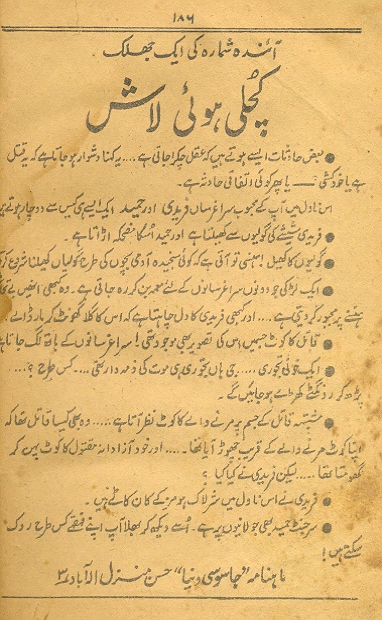 ۱۸۶
آئندہ شمارہ کی ایک جھلک
کچلی ہوئی لاش
● بعض حادثات ایسے ہوتے ہیں کہ عقل چکرا جاتی ہے .... یہ کہنا دشوار ہو جاتا ہے کہ یہ قتل
ہے یا خودکشی — یا پھر کوئی اتفاقی حادثہ ہے۔
اس ناول میں آپ کے محبوب سراغرساں فریدی اور حمید ایک ایسے ہی کیس سے دوچار ہوتے ہیں
● فریدی شیشے کی گولیوں سے کھیلتا ہے اور حمید اسکا مضحکہ اڑاتا ہے۔
● گولیوں کا کھیل! ہنسی تو آتی ہے کہ کوئی سنجیدہ آدمی بچوں کی طرح گولیاں کھیلنا شروع کر
● ایک لڑکی جو دونوں سراغرسانوں کے لئے معمہ بن کر رہ جاتی ہے۔ وہ کبھی انھیں
ہنسنے پر مجبور کر دیتی ہے .... اور کبھی فریدی کا دل چاہتا ہے کہ اس کا گلا گھونٹ کر مار ڈالے۔
● قاتل کا کوٹ جس میں اس کی تصویر بھی موجود تھی! سراغرسانوں کے ہاتھ لگ جاتا ہے
● ایک خونی تجوری ..... جی ہاں تجوری ہی موت کی ذمہ دار تھی ... کس طرح ؟ ...
پڑھ کر رونگٹے کھڑے ہو جائیں گے۔
● مشتبہ قاتل کے جسم پر مرنے والے کا کوٹ نظر آتا ہے ..... وہ بھی کیسا قاتل تھا کہ
اپنا کوٹ مرنے والے کے قریب چھوڑ آیا تھا ..... اور خود آزادانہ مقتول کا کوٹ پہن کر
گھومتا تھا ..... لیکن فریدی نے کیا کیا ؟
● فریدی نے اس ناول میں شرلاک ہومز کے کان کاٹے ہیں۔
● سرجنٹ حمید بھی جولانیوں پر ہے۔ اُسے دیکھ کر بھلا آپ اپنے قہقہے کس طرح روک
سکتے ہیں!
ماہنامہ "جاسوسی دنیا" حسن منزل الہ آباد ۳